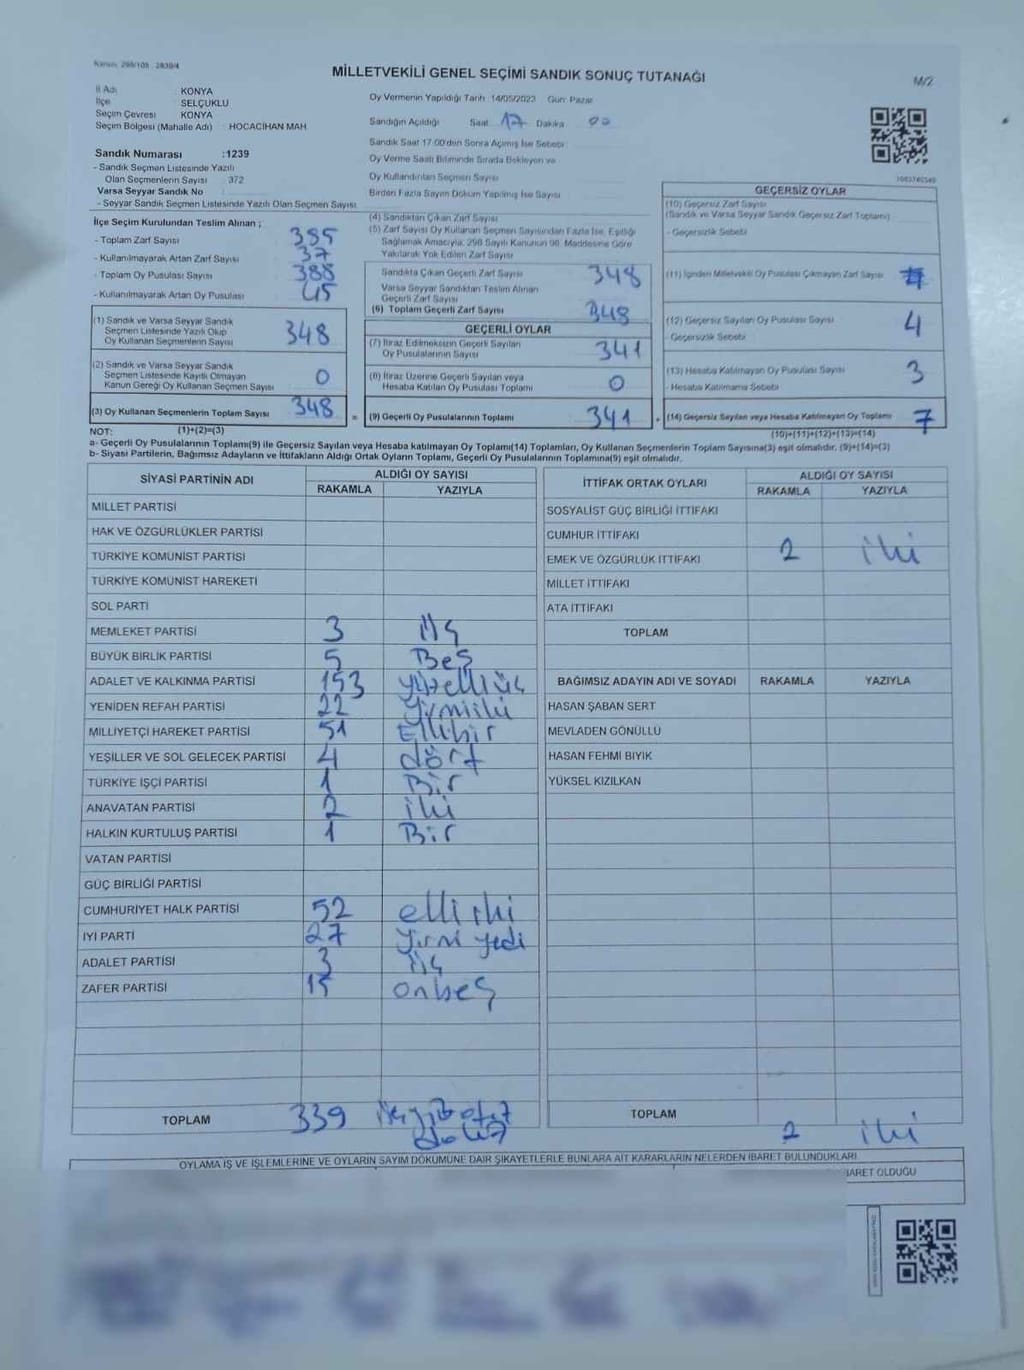 Kanun: 298/105 - 2839/4
MİLLETVEKİLİ GENEL SEÇİMİ SANDIK SONUÇ TUTANAĞI
M/2
İl Adı KONYA
İlçe SELÇUKLU
Seçim Çevresi KONYA
Seçim Bölgesi (Mahalle Adı) HOCACİHAN MAH.
Oy Vermenin Yapıldığı Tarih 14/05/2023 Gün: Pazar
Sandığın Açıldığı Saat 17 Dakika 00
Sandık Saat 17.00'den Sonra Açılmış İse Sebebi
Oy Verme Saati Bitiminde Sırada Bekleyen ve
Oy Kullandırılan Seçmen Sayısı
Birden Fazla Sayım Döküm Yapılmış İse Sayısı
Sandık Numarası :1239
- Sandık Seçmen Listesinde Yazılı
Olan Seçmenlerin Sayısı 372
Varsa Seyyar Sandık No
- Seyyar Sandık Seçmen Listesinde Yazılı Olan Seçmen Sayısı
İlçe Seçim Kurulundan Teslim Alınan ;
- Toplam Zarf Sayısı 385
- Kullanılmayarak Artan Zarf Sayısı 37
- Toplam Oy Pusulası Sayısı 388
- Kullanılmayarak Artan Oy Pusulası 45
(1) Sandık ve Varsa Seyyar Sandık
Seçmen Listesinde Yazılı Olup
Oy Kullanan Seçmenlerin Sayısı 348
(2) Sandık ve Varsa Seyyar Sandık
Seçmen Listesinde Kayıtlı Olmayan
Kanun Gereği Oy Kullanan Seçmen Sayısı 0
(3) Oy Kullanan Seçmenlerin Toplam Sayısı 348
(4) Sandıktan Çıkan Zarf Sayısı
(5) Zarf Sayısı Oy Kullanan Seçmen Sayısından Fazla İse, Eşitliği
Sağlamak Amacıyla, 298 Sayılı Kanunun 98. Maddesine Göre
Yakılarak Yok Edilen Zarf Sayısı
Sandıkta Çıkan Geçerli Zarf Sayısı 348
Varsa Seyyar Sandıktan Teslim Alınan
Geçerli Zarf Sayısı
(6) Toplam Geçerli Zarf Sayısı 348
GEÇERLİ OYLAR
(7) İtiraz Edilmeksizin Geçerli Sayılan
Oy Pusulalarının Sayısı 341
(8) İtiraz Üzerine Geçerli Sayılan veya
Hesaba Katılan Oy Pusulası Toplamı 0
= (9) Geçerli Oy Pusulalarının Toplamı 341
GEÇERSİZ OYLAR
(10) Geçersiz Zarf Sayısı
(Sandık ve Varsa Seyyar Sandık Geçersiz Zarf Toplamı)
- Geçersizlik Sebebi
(11) İçinden Milletvekili Oy Pusulası Çıkmayan Zarf Sayısı
(12) Geçersiz Sayılan Oy Pusulası Sayısı 4
- Geçersizlik Sebebi
(13) Hesaba Katılmayan Oy Pusulası Sayısı 3
- Hesaba Katılmama Sebebi
+ (14) Geçersiz Sayılan veya Hesaba Katılmayan Oy Toplamı 7
NOT: (1)+(2)=(3) (10)+(11)+(12)+(13)=(14)
a- Geçerli Oy Pusulalarının Toplamı(9) ile Geçersiz Sayılan veya Hesaba katılmayan Oy Toplamı(14) Toplamları, Oy Kullanan Seçmenlerin Toplam Sayısına(3) eşit olmalıdır. (9)+(14)=(3)
b- Siyasi Partilerin, Bağımsız Adayların ve İttifakların Aldığı Ortak Oyların Toplamı, Geçerli Oy Pusulalarının Toplamına(9) eşit olmalıdır.
SİYASİ PARTİNİN ADI ALDIĞI OY SAYISI
RAKAMLA YAZIYLA
MİLLET PARTİSİ
HAK VE ÖZGÜRLÜKLER PARTİSİ
TÜRKİYE KOMÜNİST PARTİSİ
TÜRKİYE KOMÜNİST HAREKETİ
SOL PARTİ
MEMLEKET PARTİSİ 3 üç
BÜYÜK BİRLİK PARTİSİ 5 Beş
ADALET VE KALKINMA PARTİSİ 153 yüzelliüç
YENİDEN REFAH PARTİSİ 22
MİLLİYETÇİ HAREKET PARTİSİ 51 Ellibir
YEŞİLLER VE SOL GELECEK PARTİSİ 4 dört
TÜRKİYE İŞÇİ PARTİSİ 1 Bir
ANAVATAN PARTİSİ 2 iki
HALKIN KURTULUŞ PARTİSİ 1 Bir
VATAN PARTİSİ
GÜÇ BİRLİĞİ PARTİSİ
CUMHURİYET HALK PARTİSİ 52 elli iki
İYİ PARTİ 27 yirmi yedi
ADALET PARTİSİ 3 üç
ZAFER PARTİSİ 15 onbeş
TOPLAM 339
İTTİFAK ORTAK OYLARI ALDIĞI OY SAYISI
RAKAMLA YAZIYLA
SOSYALİST GÜÇ BİRLİĞİ İTTİFAKI
CUMHUR İTTİFAKI
EMEK VE ÖZGÜRLÜK İTTİFAKI 2 iki
MİLLET İTTİFAKI
ATA İTTİFAKI
TOPLAM
BAĞIMSIZ ADAYIN ADI VE SOYADI RAKAMLA YAZIYLA
HASAN ŞABAN SERT
MEVLADEN GÖNÜLLÜ
HASAN FEHMİ BIYIK
YÜKSEL KIZILKAN
TOPLAM 2 iki
OYLAMA İŞ VE İŞLEMLERİNE VE OYLARIN SAYIM DÖKÜMÜNE DAİR ŞİKAYETLERLE BUNLARA AİT KARARLARIN NELERDEN İBARET BULUNDUKLARI
İBARET OLDUĞU